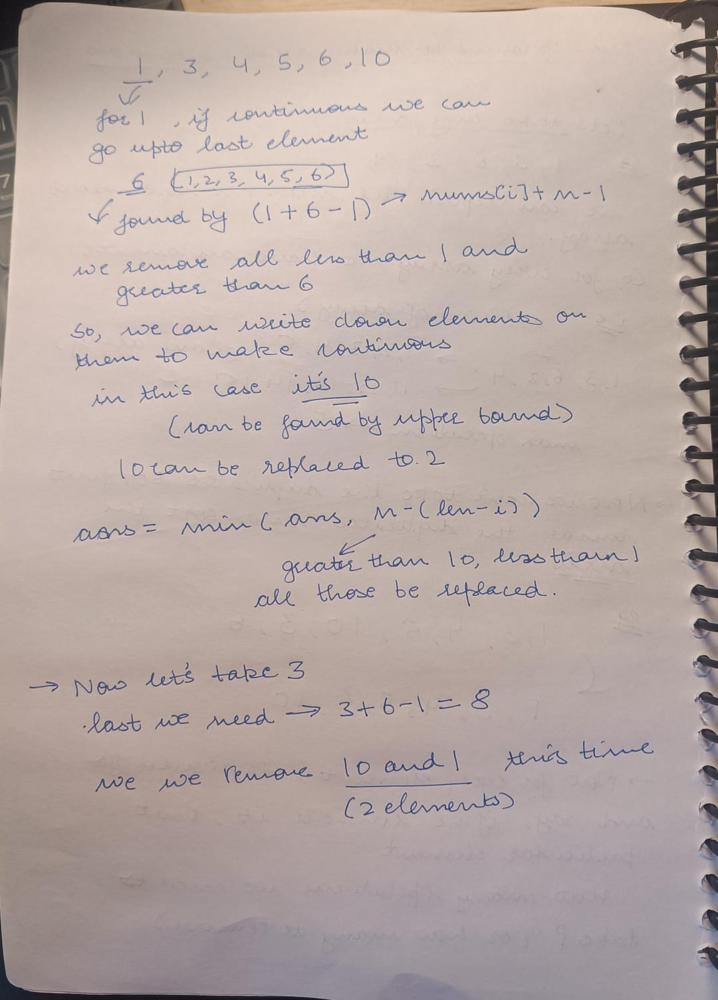 1, 3, 4, 5, 6, 10
for 1, if continuous we can
go upto last element
6 (1,2,3,4,5,6)
found by (1+6-1) → nums[i]+n-1
we remove all less than 1 and
greater than 6
So, we can write down elements on
them to make continuous
in this case it's 10
(can be found by upper bound)
10 can be replaced to 2
ans = min(ans, n-(len-i))
greater than 10, less than 1
all those be replaced.
→ Now let's take 3
last we need → 3+6-1=8
we we remove 10 and 1 this time
(2 elements)